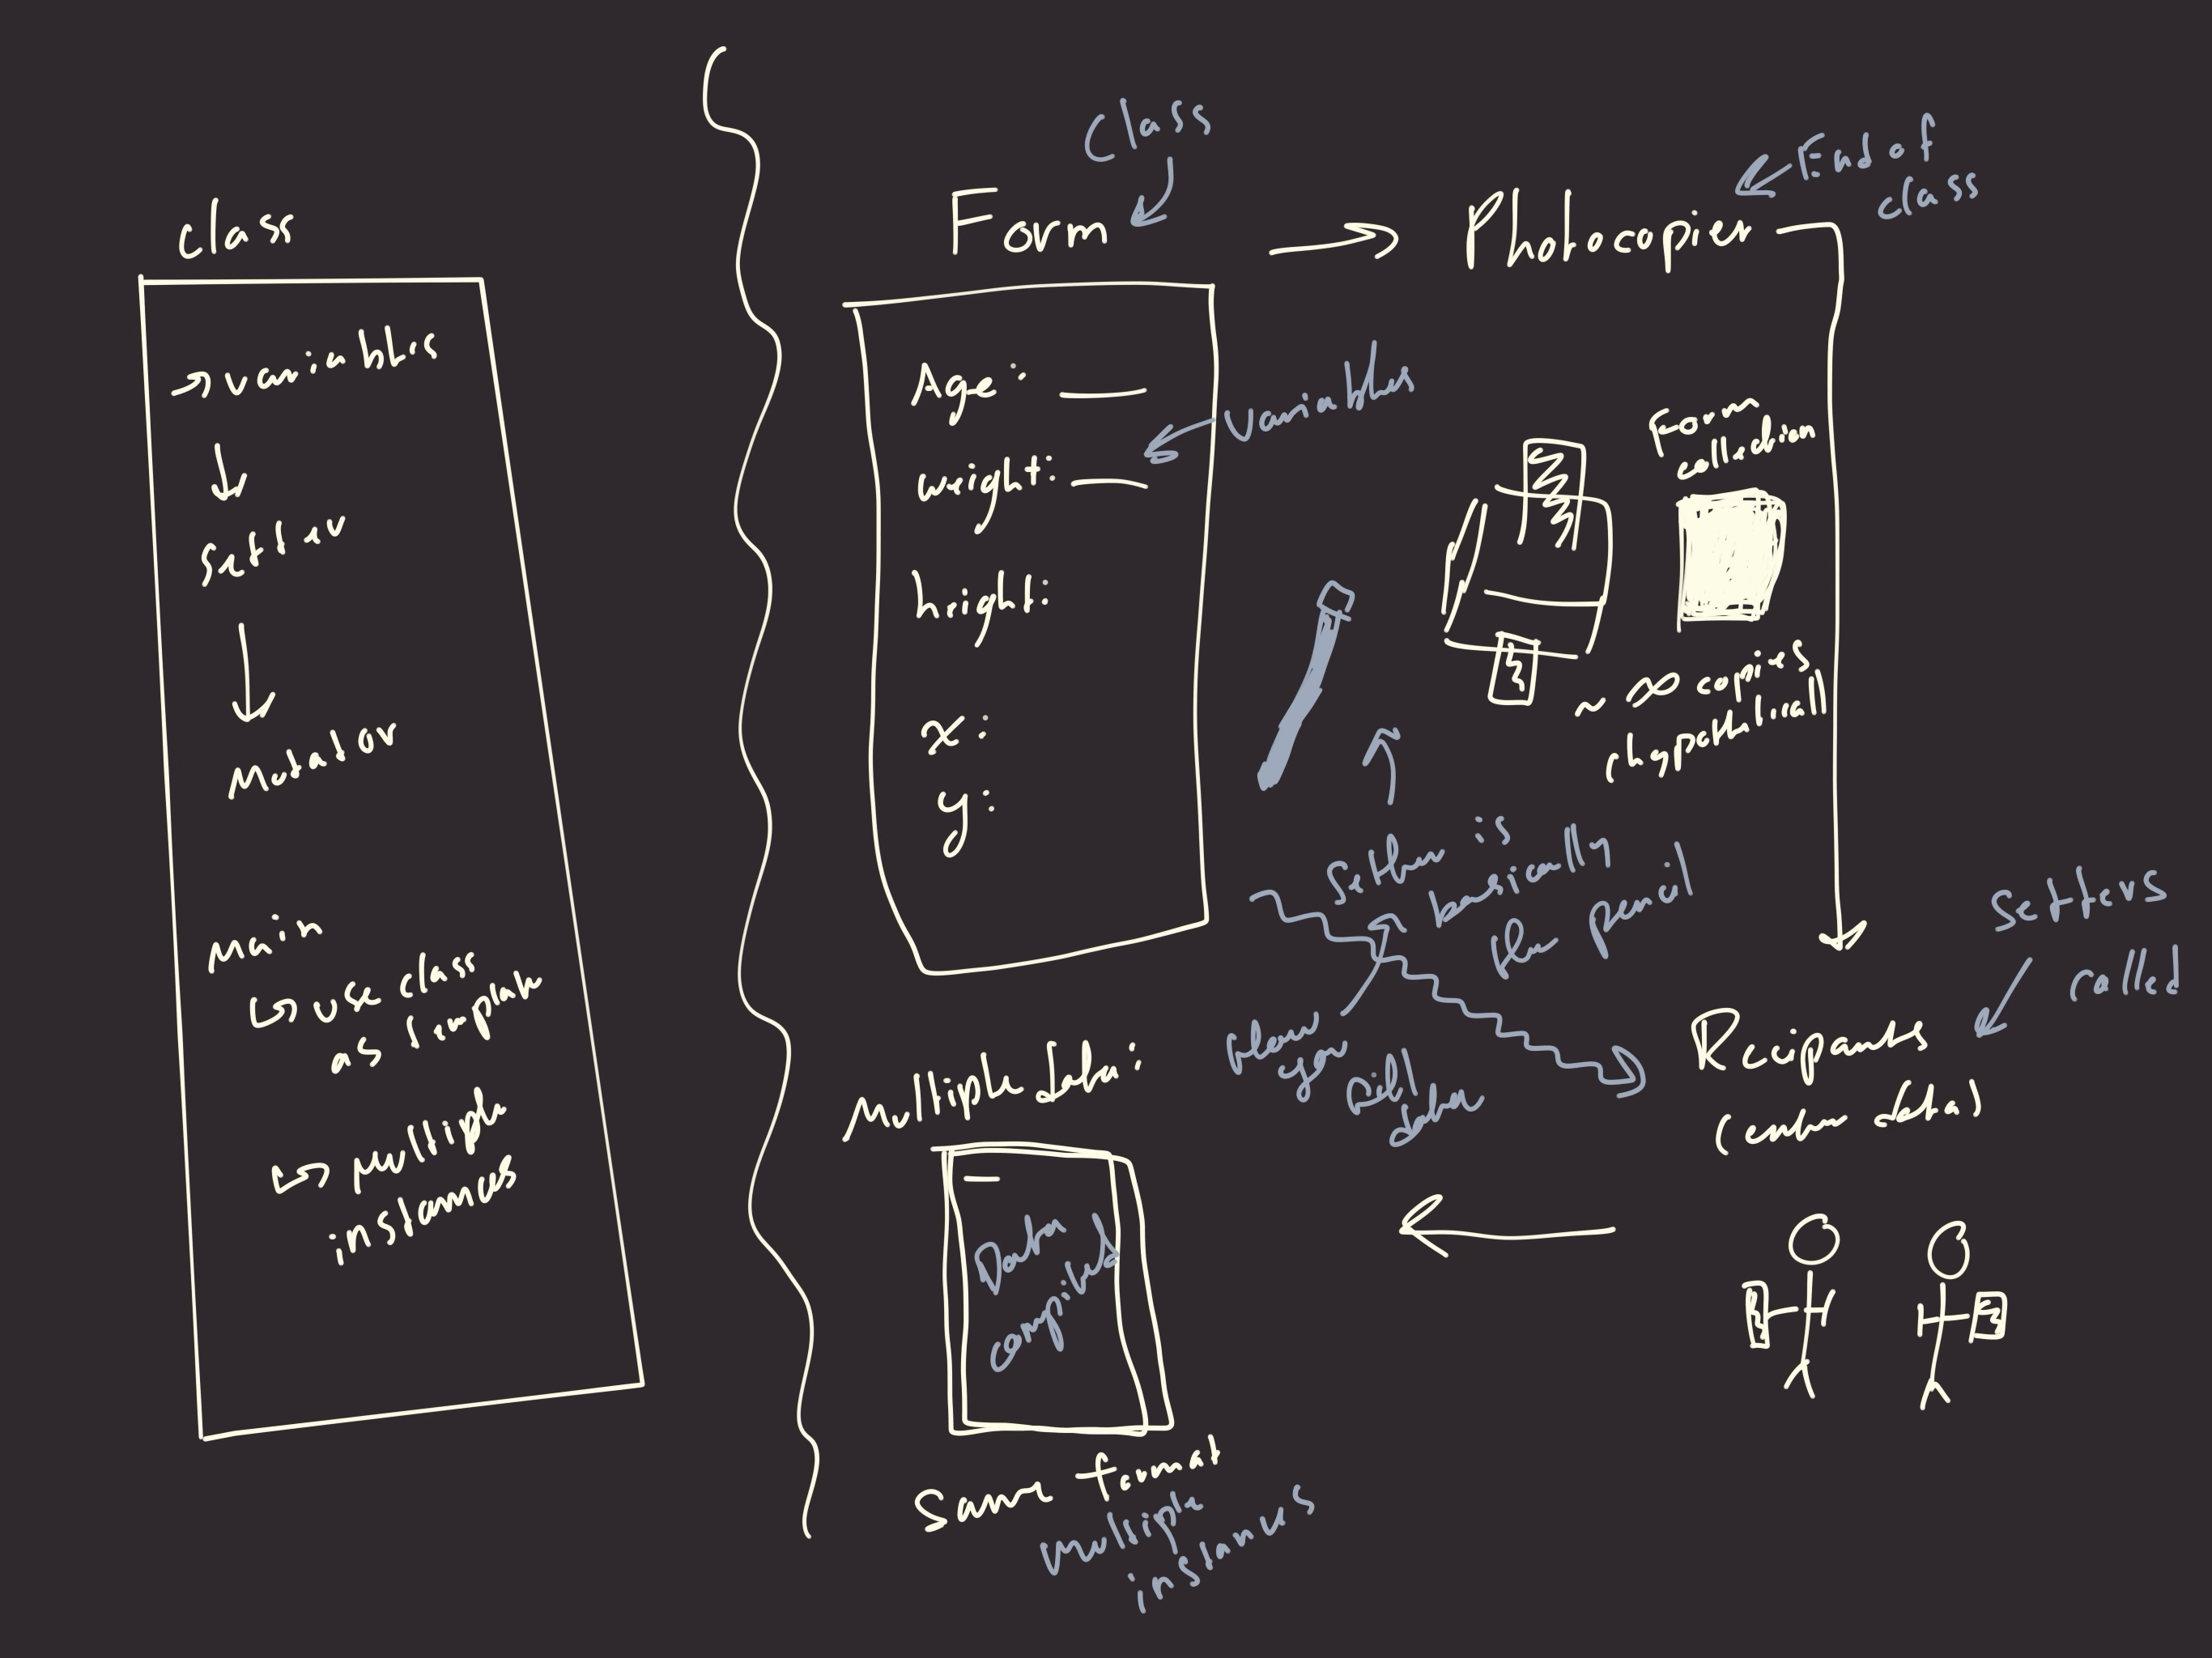 class
variables
Setter
Mutator
main
use class
as template
multiple
instances
Class
Form
Age:
weight:
height:
x:
y:
variables
Photocopier
End of
class
Form
collection
~ ∞ copies
(hypothetical)
Setter is
basically
the pencil
setters
called
Recipants
(enter data)
Multiple data:
Data
compiled
Same format
multiple
instances